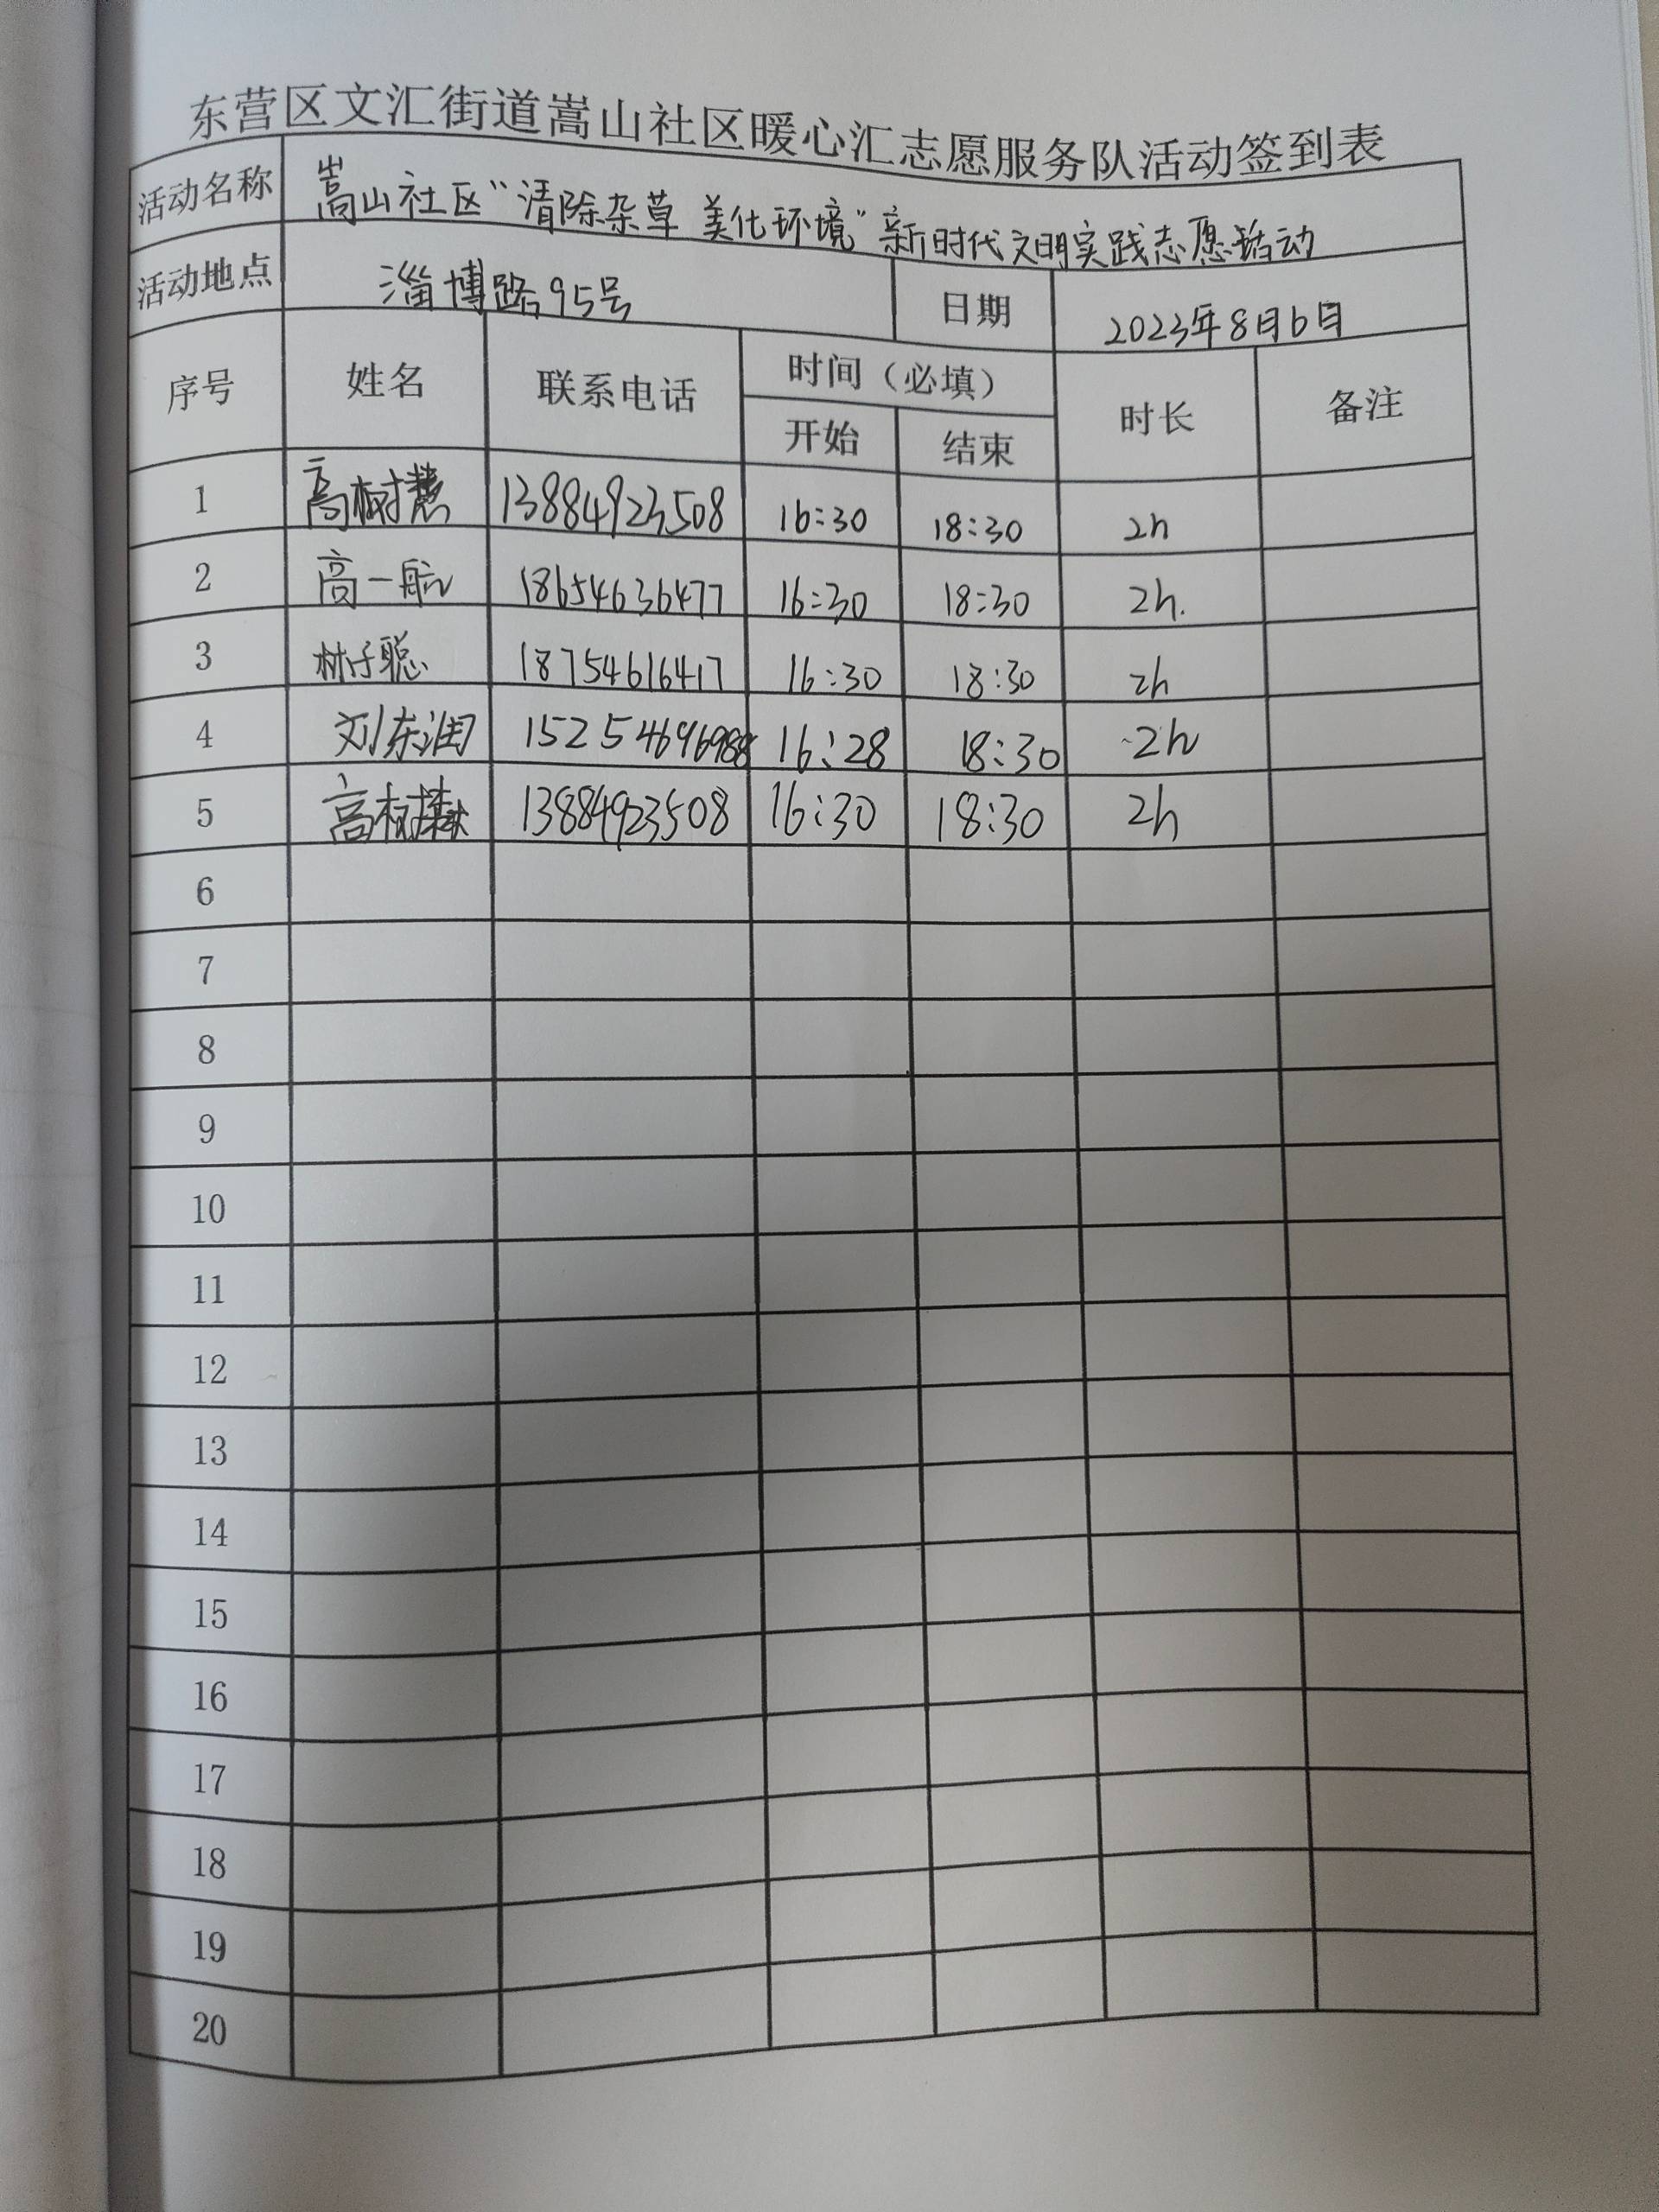 东营区文汇街道嵩山社区暖心汇志愿服务队活动签到表
活动名称 嵩山社区“清除杂草 美化环境”新时代文明实践志愿活动
活动地点 淄博路95号 日期 2023年8月6日
序号 姓名 联系电话 时间（必填） 时长 备注
开始 结束
1 高树慧 13884923508 16:30 18:30 2h
2 高一航 18654636477 16:30 18:30 2h.
3 林子聪 18754616417 16:30 18:30 2h
4 刘东润 16:28 18:30 2h
5 高树 13884923508 16:30 18:30 2h
6
7
8
9
10
11
12
13
14
15
16
17
18
19
20